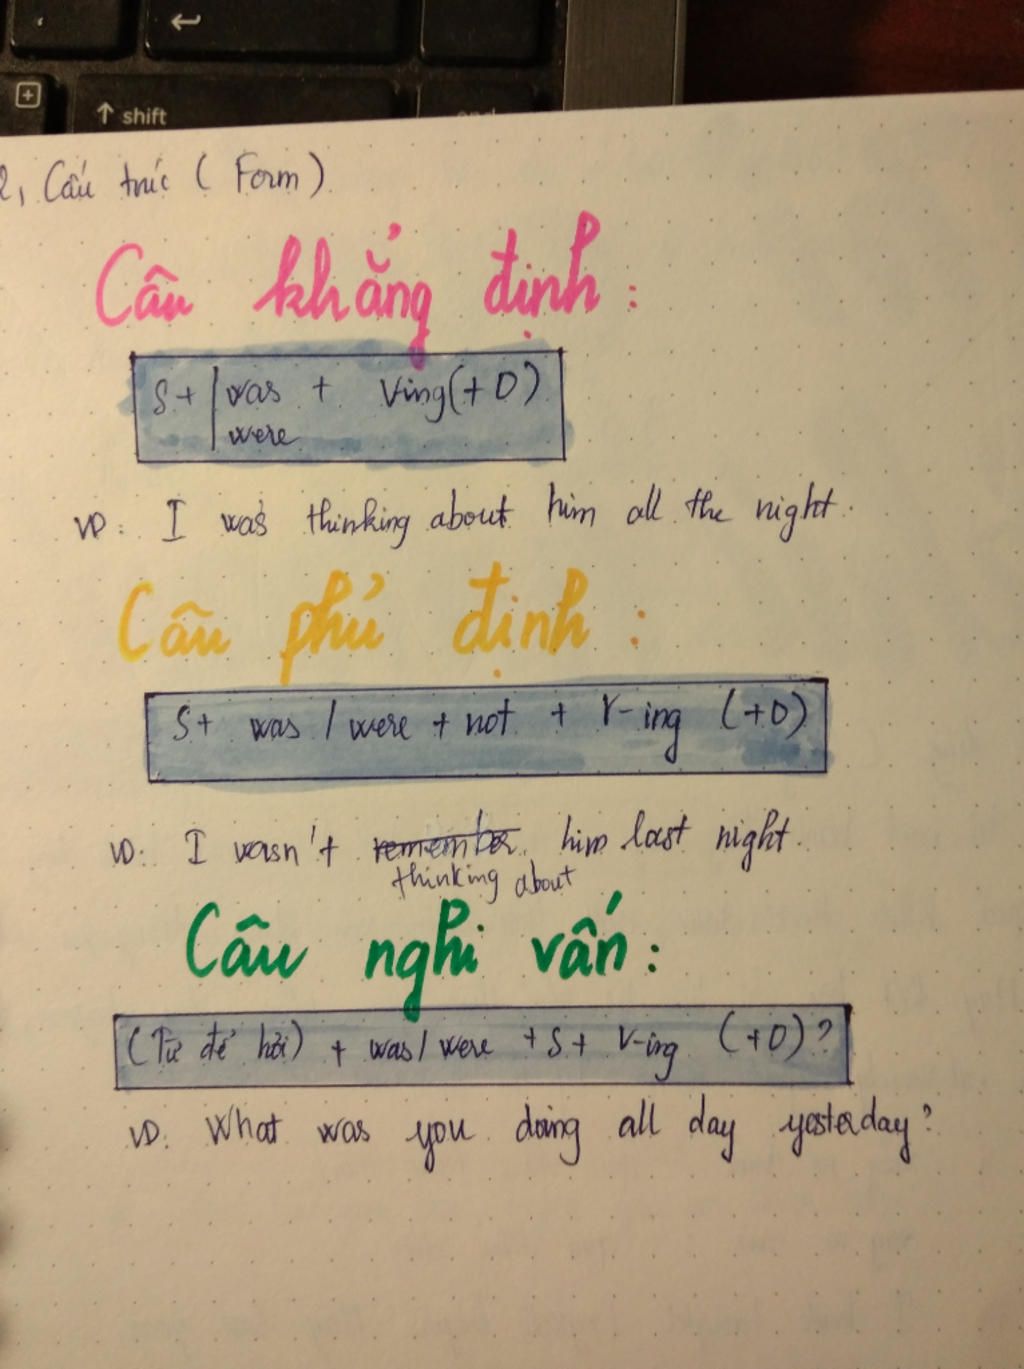 shift
2, Cấu trúc ( Form )
Câu khẳng định :
S + | was + Ving (+ O)
were
VD: I was thinking about him all the night.
Câu phủ định :
S + was / were + not + V-ing (+O)
VD: I wasn't remember him last night.
thinking about
Câu nghi vấn :
(Từ để hỏi) + was / were + S + V-ing (+O) ?
VD: What was you doing all day yesterday ?